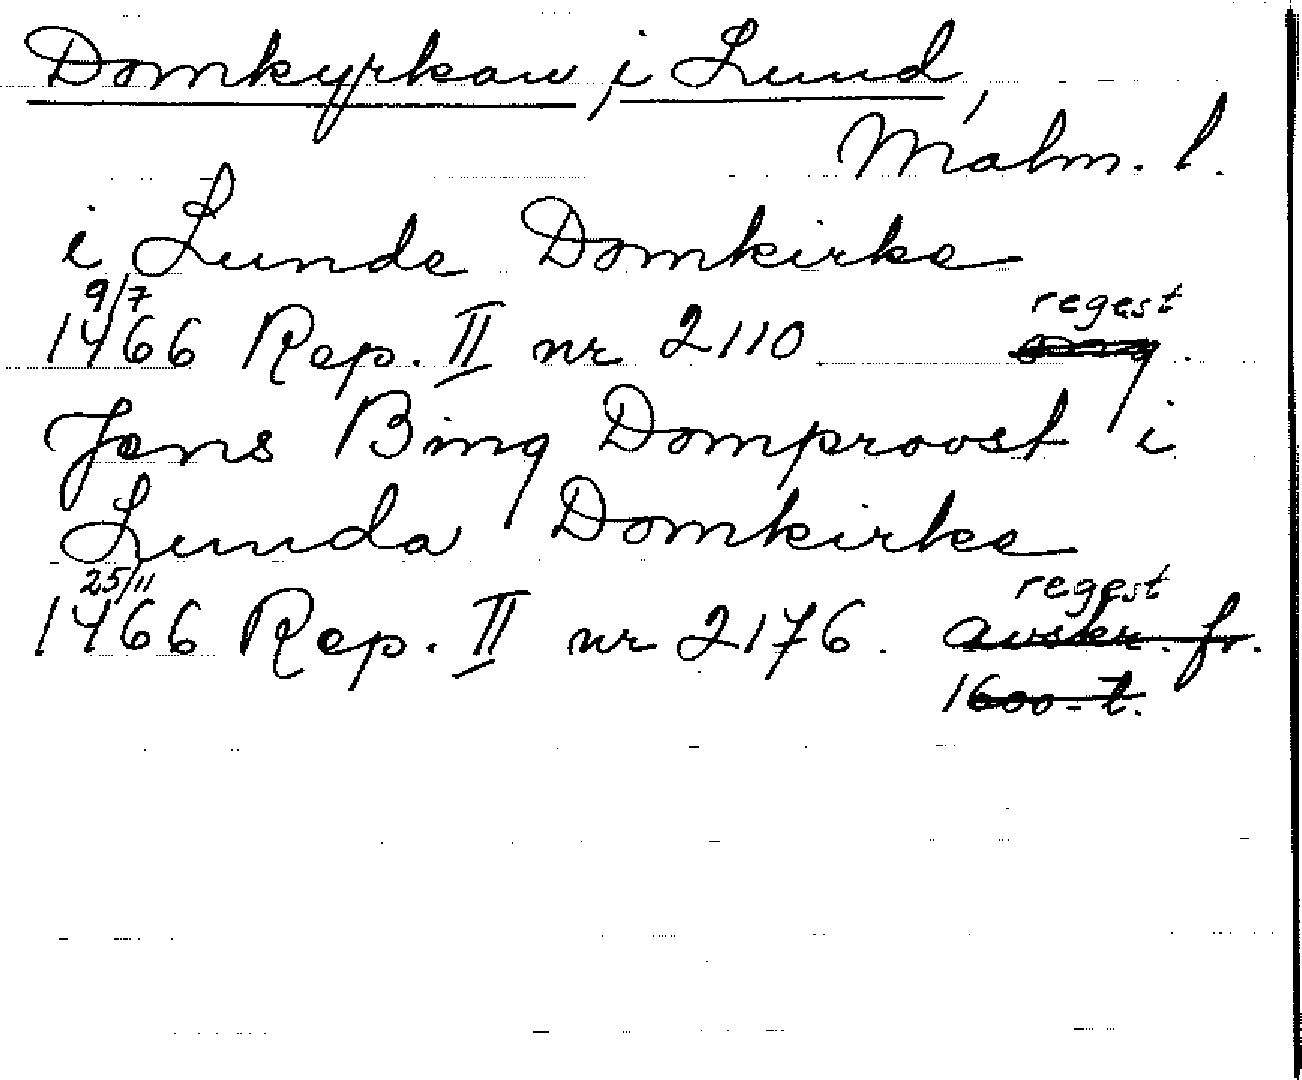 Domkyrkan, i Lund,
Malm. l.
i Lunde Domkirke
9/7 regest
1466 Rep. II nr 2110 orig.
Jens Bing Domproost i
Lunda Domkirke
25/11 regest
1466 Rep. II nr 2176. avskr. fr.
1600-t.